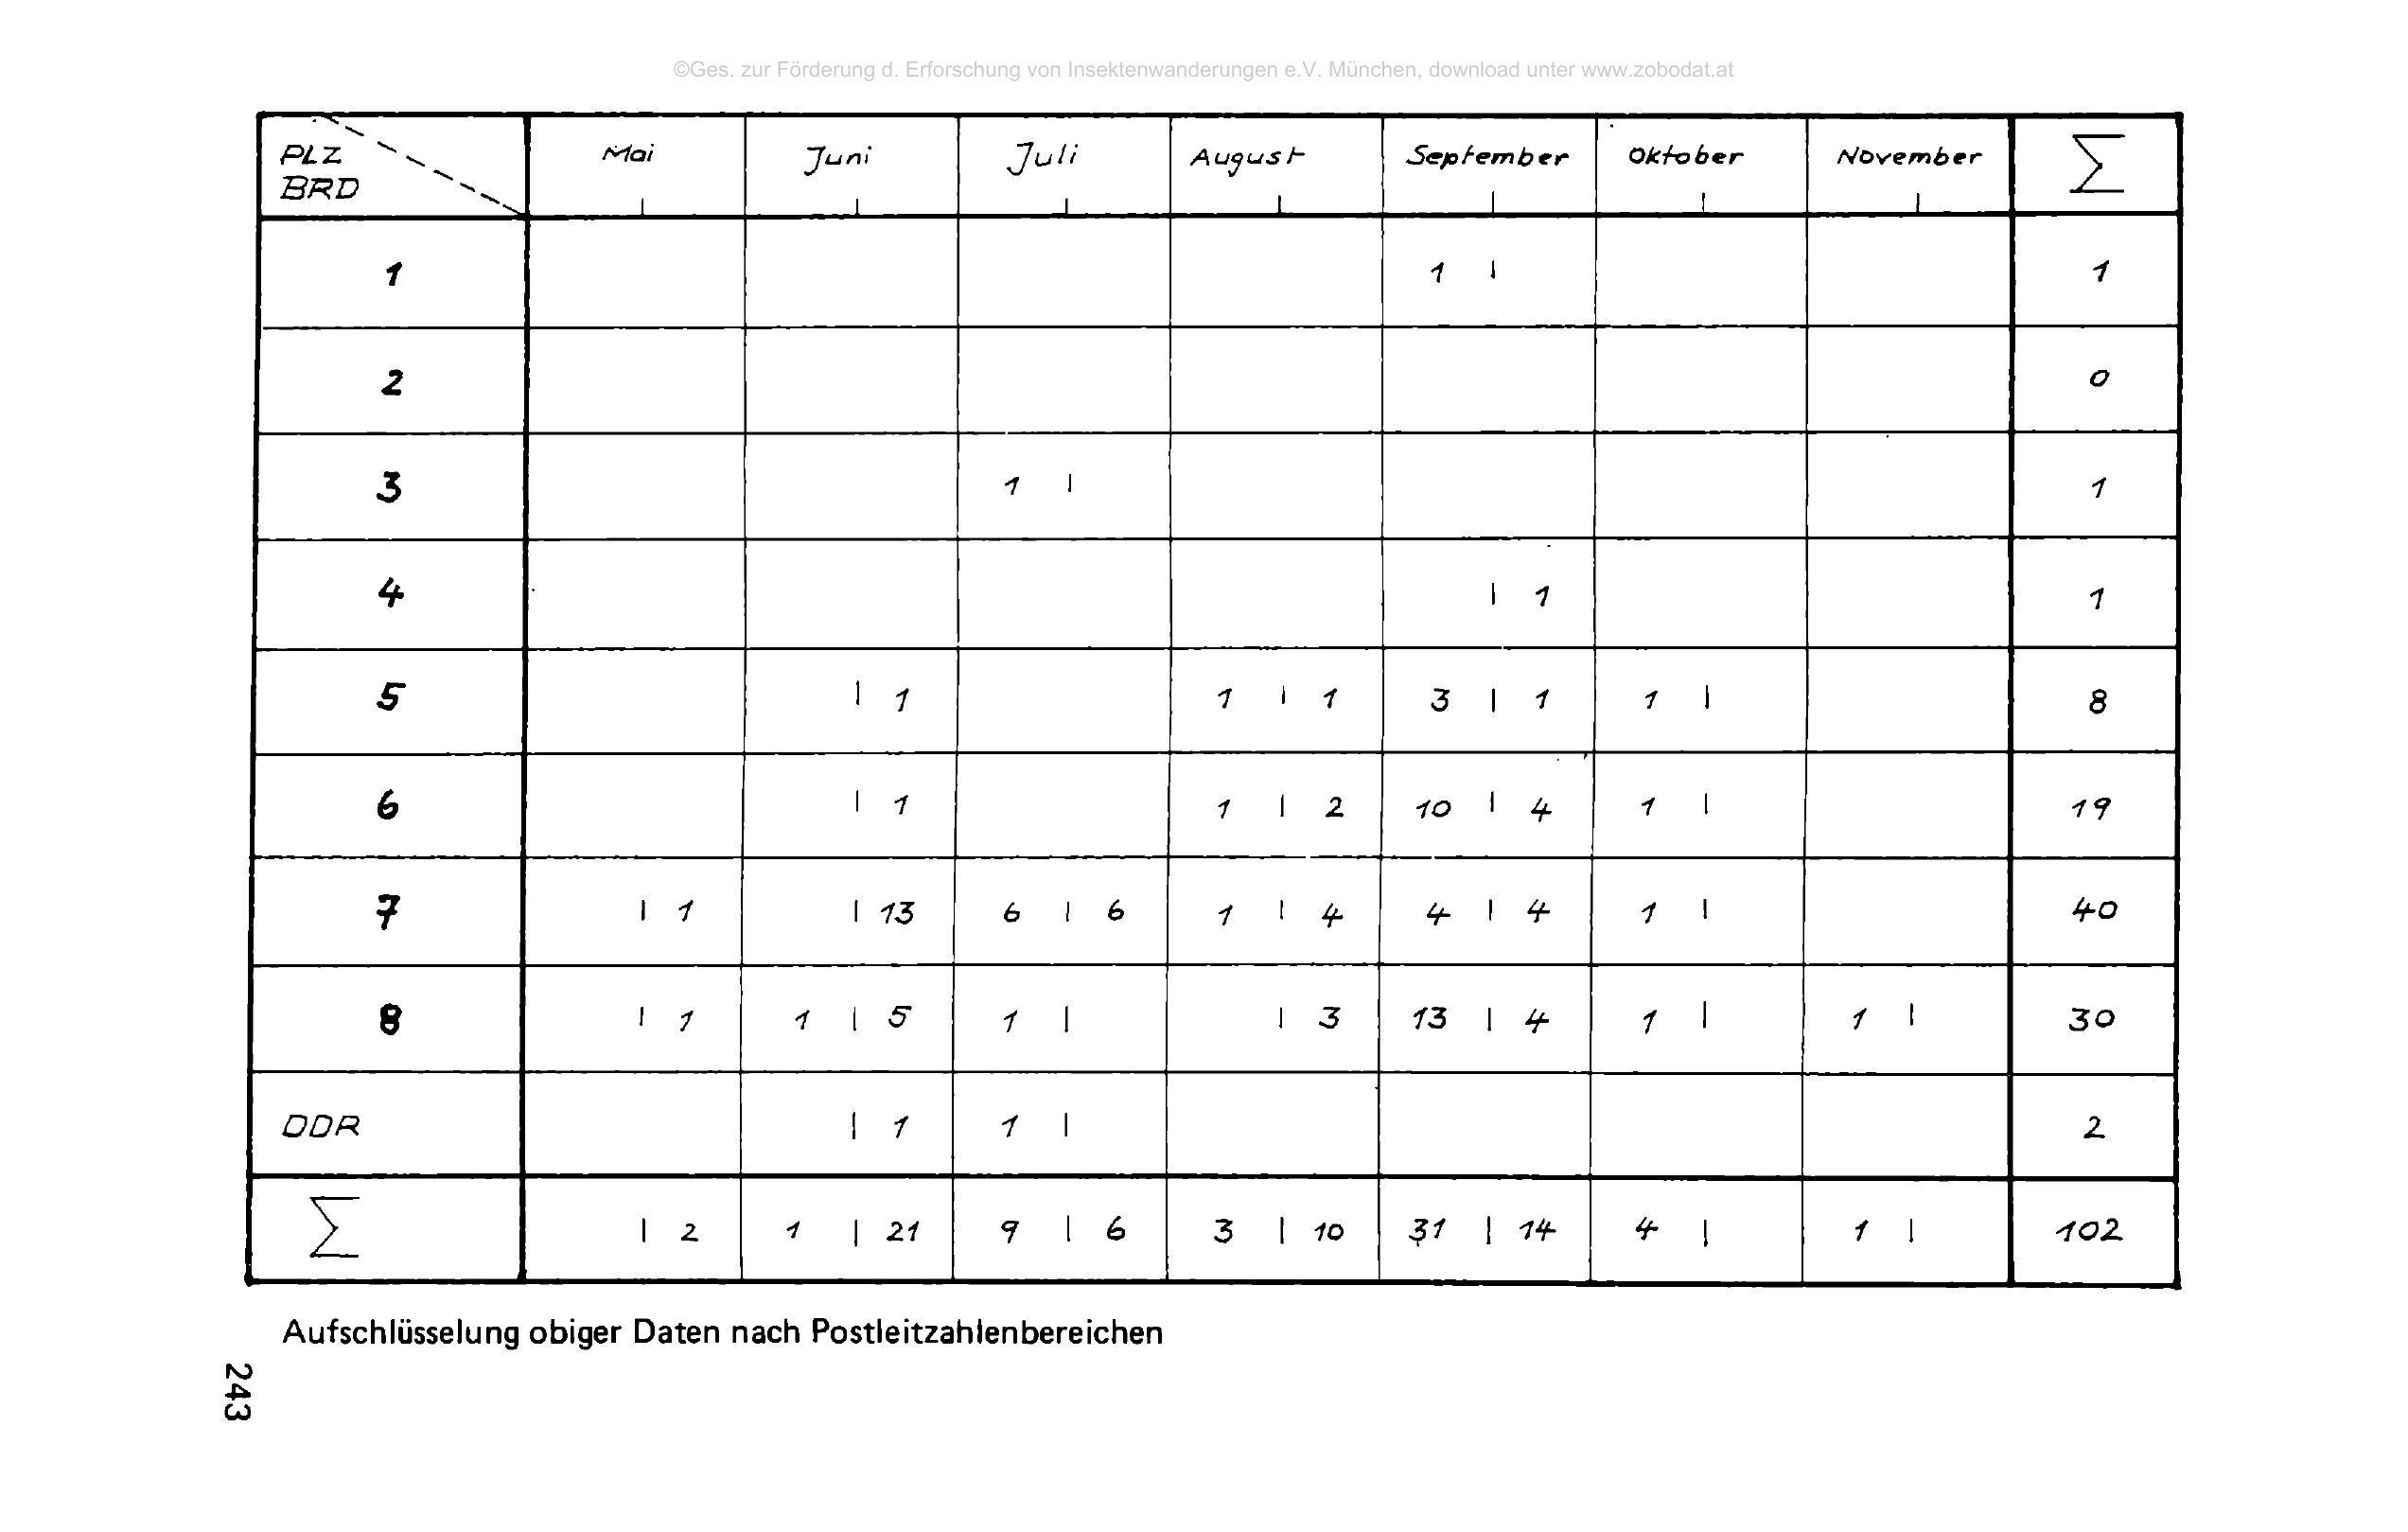 ©Ges. zur Förderung d. Erforschung von Insektenwanderungen e.V. München, download unter www.zobodat.at
PLZ BRD Mai Juni Juli August September Oktober November Σ
1 1 | 1
2 0
3 1 | 1
4 | 1 1
5 | 1 1 | 1 3 | 1 1 | 8
6 | 1 1 | 2 10 | 4 1 | 19
7 | 1 | 13 6 | 6 1 | 4 4 | 4 1 | 40
8 | 1 1 | 5 1 | | 3 13 | 4 1 | 1 | 30
DDR | 1 1 | 2
Σ | 2 1 | 21 9 | 6 3 | 10 31 | 14 4 | 1 | 102
Aufschlüsselung obiger Daten nach Postleitzahlenbereichen
243